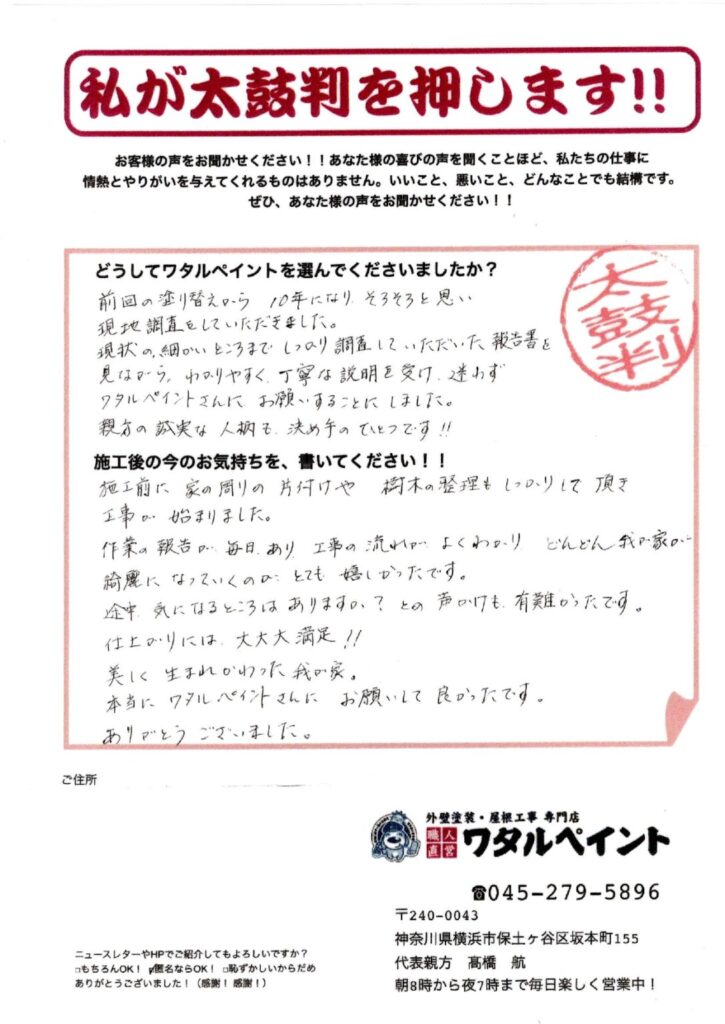 私が太鼓判を押します!!
お客様の声をお聞かせください！！あなた様の喜びの声を聞くことほど、私たちの仕事に
情熱とやりがいを与えてくれるものはありません。いいこと、悪いこと、どんなことでも結構です。
ぜひ、あなた様の声をお聞かせください！！
どうしてワタルペイントを選んでくださいましたか？
太鼓判
前回の塗り替えから 10年になり そろそろと思い
現地調査をしていただきました。
現状の細かいところまで しっかり調査していただいた報告書を
見ながら、わかりやすく、丁寧な説明を受け、迷わず
ワタルペイントさんに お願いすることにしました。
親方の誠実な人柄も、決め手のひとつです!!
施工後の今のお気持ちを、書いてください！！
施工前に 家の周りの 片付けや 樹木の整理も しっかりして頂き
工事が 始まりました。
作業の報告が 毎日あり 工事の流れが よくわかり どんどん我が家が
綺麗になっていくのが とても 嬉しかったです。
途中、気になるところはありますか？との 声かけも、有難かったです。
仕上がりには、大大大満足!!
美しく 生まれかわった 我が家。
本当に ワタルペイントさんに お願いして 良かったです。
ありがとうございました。
ご住所
外壁塗装・屋根工事 専門店
職人直営 ワタルペイント
☎045-279-5896
〒240-0043
神奈川県横浜市保土ヶ谷区坂本町155
代表親方 髙橋 航
朝8時から夜7時まで毎日楽しく営業中！
ニュースレターやHPでご紹介してもよろしいですか？
□もちろんOK！ ☑匿名ならOK！ □恥ずかしいからだめ
ありがとうございました！（感謝！感謝！）